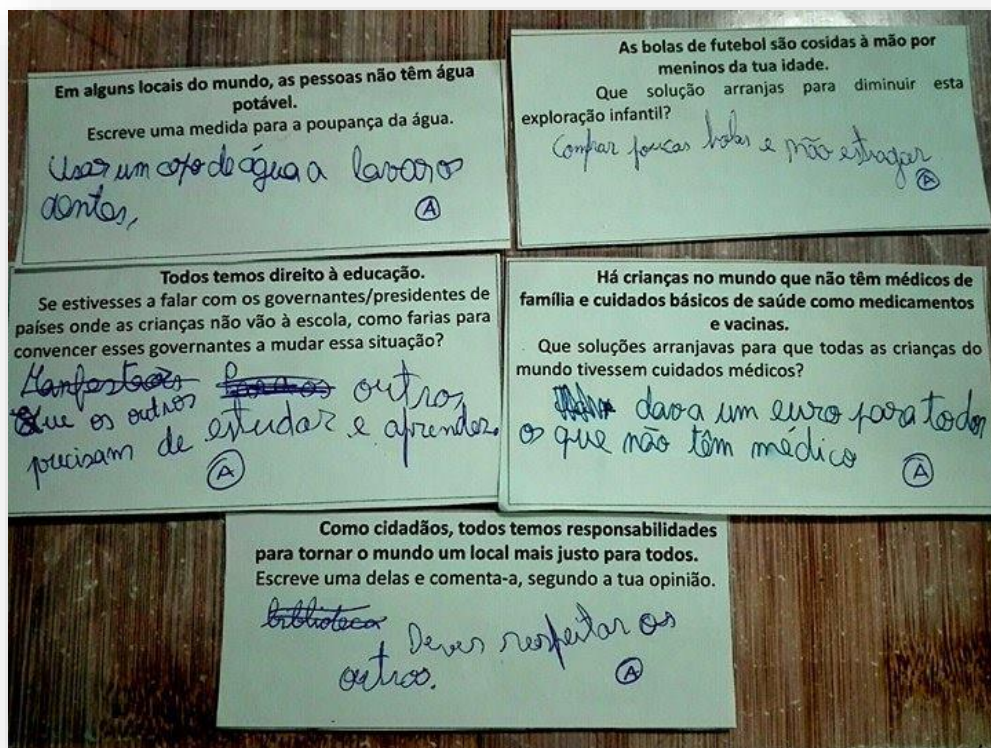 Em alguns locais do mundo, as pessoas não têm água
potável.
Escreve uma medida para a poupança da água.
Usar um copo de água a lavar os
dentes,
A
As bolas de futebol são cosidas à mão por
meninos da tua idade.
Que solução arranjas para diminuir esta
exploração infantil?
Comprar poucas bolas e não estragar
A
Todos temos direito à educação.
Se estivesses a falar com os governantes/presidentes de
países onde as crianças não vão à escola, como farias para
convencer esses governantes a mudar essa situação?
outros
Que os outros
precisam de estudar e aprender.
A
Há crianças no mundo que não têm médicos de
família e cuidados básicos de saúde como medicamentos
e vacinas.
Que soluções arranjavas para que todas as crianças do
mundo tivessem cuidados médicos?
dava um euro para todos
os que não têm médico
A
Como cidadãos, todos temos responsabilidades
para tornar o mundo um local mais justo para todos.
Escreve uma delas e comenta-a, segundo a tua opinião.
biblioteca Deves respeitar os
outros.
A